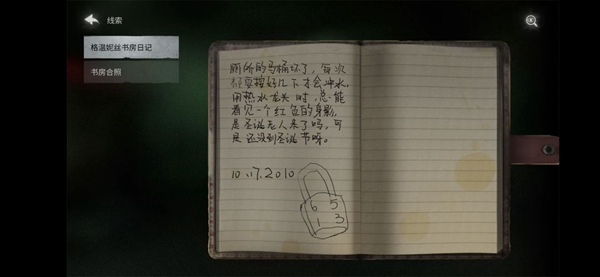 线索
格温妮丝书房日记
书房合照
厕所的马桶坏了，每次
都要按好几下才会冲水，
用热水龙头时，总能
看见一个红色的身影，
是圣诞老人来了吗，可
是还没到圣诞节呀。
10.17.2010
6 5
1 3